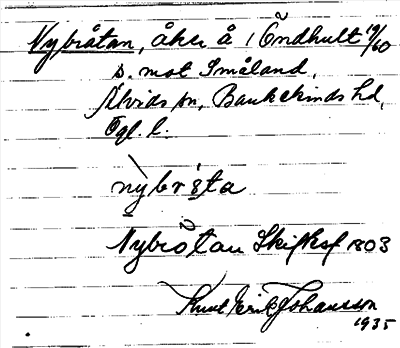 Nybråtan, åker å 1 Öndhult 19/60
s. mot Småland,
Åtvids sn, Bankekinds hd,
Ögl. l.
nybrå̀ta
Nybrötan Skifteskf 1803
Knut Erik Johansson
1935